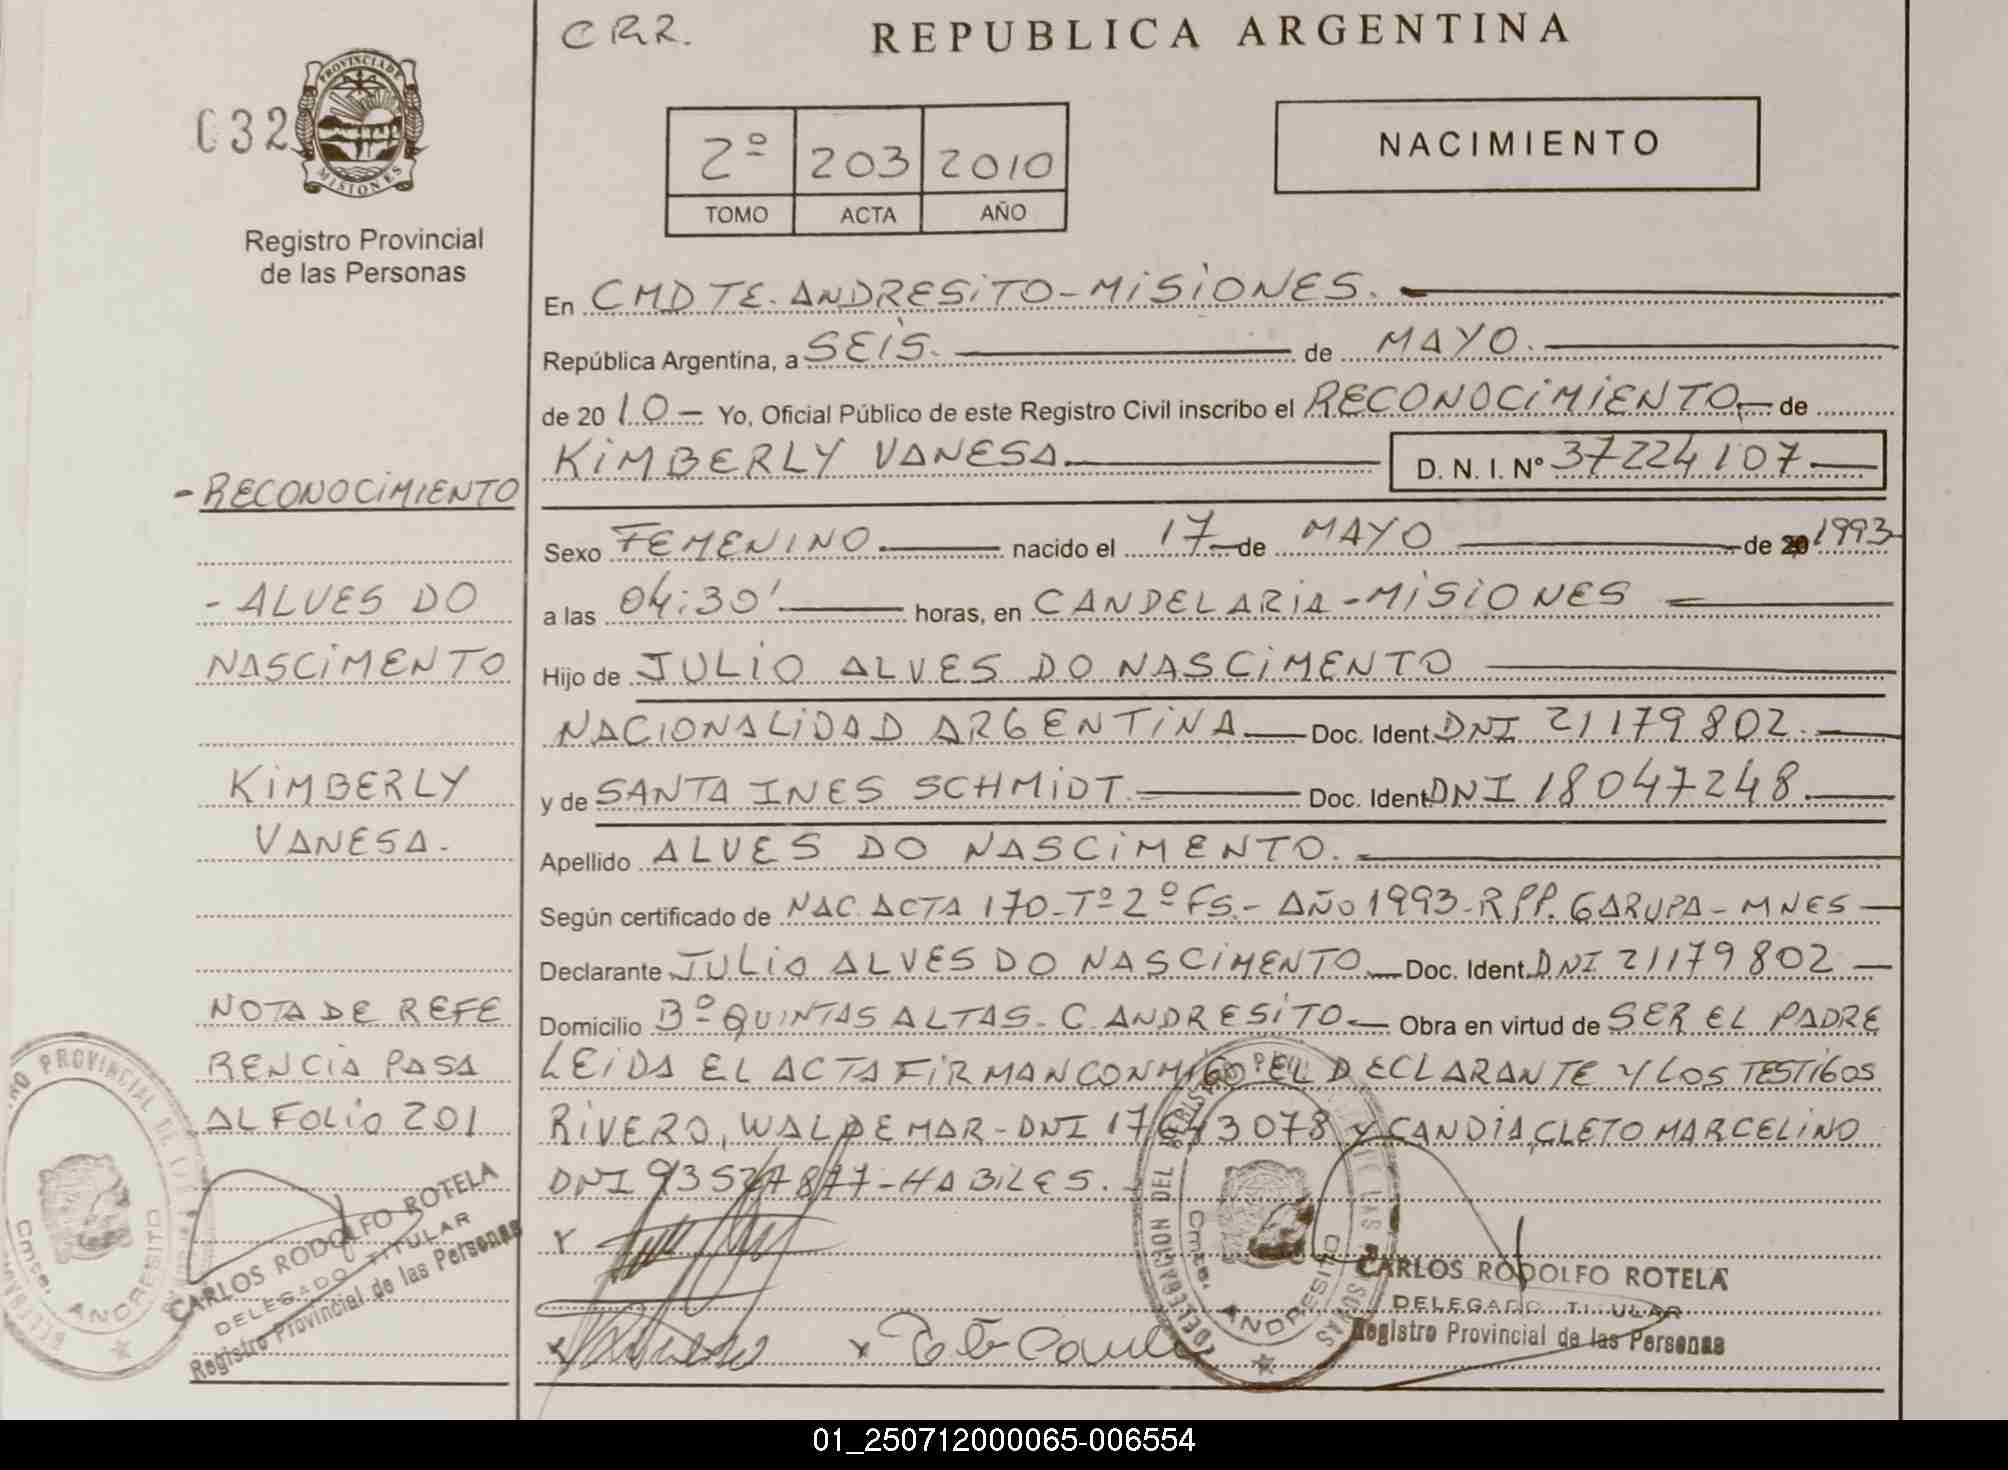 C R R.
REPUBLICA ARGENTINA
032
PROVINCIA DE
MISIONES
Registro Provincial
de las Personas
2º 203 2010
TOMO ACTA AÑO
NACIMIENTO
En CMDTE. ANDRESITO - MISIONES.
República Argentina, a SEIS. de MAYO.
de 20 10 - Yo, Oficial Público de este Registro Civil inscribo el RECONOCIMIENTO de
KIMBERLY VANESA D. N. I. Nº 37224107
Sexo FEMENINO nacido el 17 de MAYO de 20 1993
a las 04:30' horas, en CANDELARIA - MISIONES
Hijo de JULIO ALVES DO NASCIMENTO
NACIONALIDAD ARGENTINA Doc. Ident. DNI 21179802.
y de SANTA INES SCHMIDT. Doc. Ident. DNI 18047248.
Apellido ALVES DO NASCIMENTO.
Según certificado de NAC. ACTA 170 - Tº 2º FS. - AÑO 1993 - RPP. GARUPA - MNES
Declarante JULIO ALVES DO NASCIMENTO Doc. Ident. DNI 21179802
Domicilio Bº QUINTAS ALTAS - C ANDRESITO Obra en virtud de SER EL PADRE
LEIDA EL ACTA FIRMAN CONMIGO EL DECLARANTE Y LOS TESTIGOS
RIVERO, WALDEMAR - DNI 17643078 Y CANDIA, CLETO MARCELINO
DNI 93527877 - HABILES.
- RECONOCIMIENTO
- ALVES DO
NASCIMENTO
KIMBERLY
VANESA.
NOTA DE REFE
RENCIA PASA
AL FOLIO 201
CARLOS RODOLFO ROTELA
DELEGADO TITULAR
Registro Provincial de las Personas
Cmte. ANDRESITO
CARLOS RODOLFO ROTELA
DELEGADO TITULAR
Registro Provincial de las Personas
DELEGACION DEL REGISTRO
Cmte. ANDRESITO
01_250712000065-006554